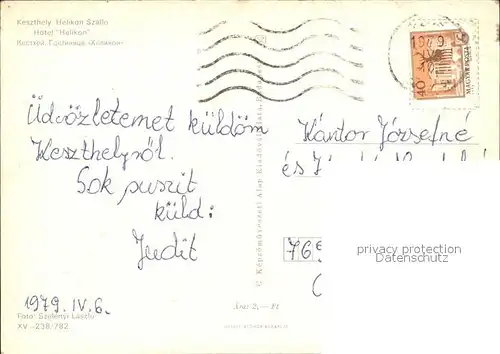 Keszthely Helikon Szálló
Hotel "Helikon"
Кестхей. Гостиница «Хеликон»
1979
40
MAGYAR POSTA
Üdvözletemet küldöm
Keszthelyről.
Sok puszit
küld:
Judit
1979. IV. 6.
Kántor Józsefné
és
769
privacy protection
Datenschutz
© Képzőművészeti Alap Kiadóvállalata, Budapest
Ára: 2,— Ft
Foto: Szelényi László
XV-238/782